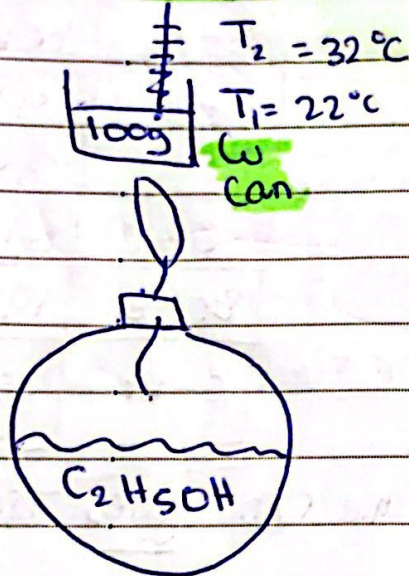 T₂ = 32°C
T₁ = 22°C
100g
Cu
Can
C₂H5OH